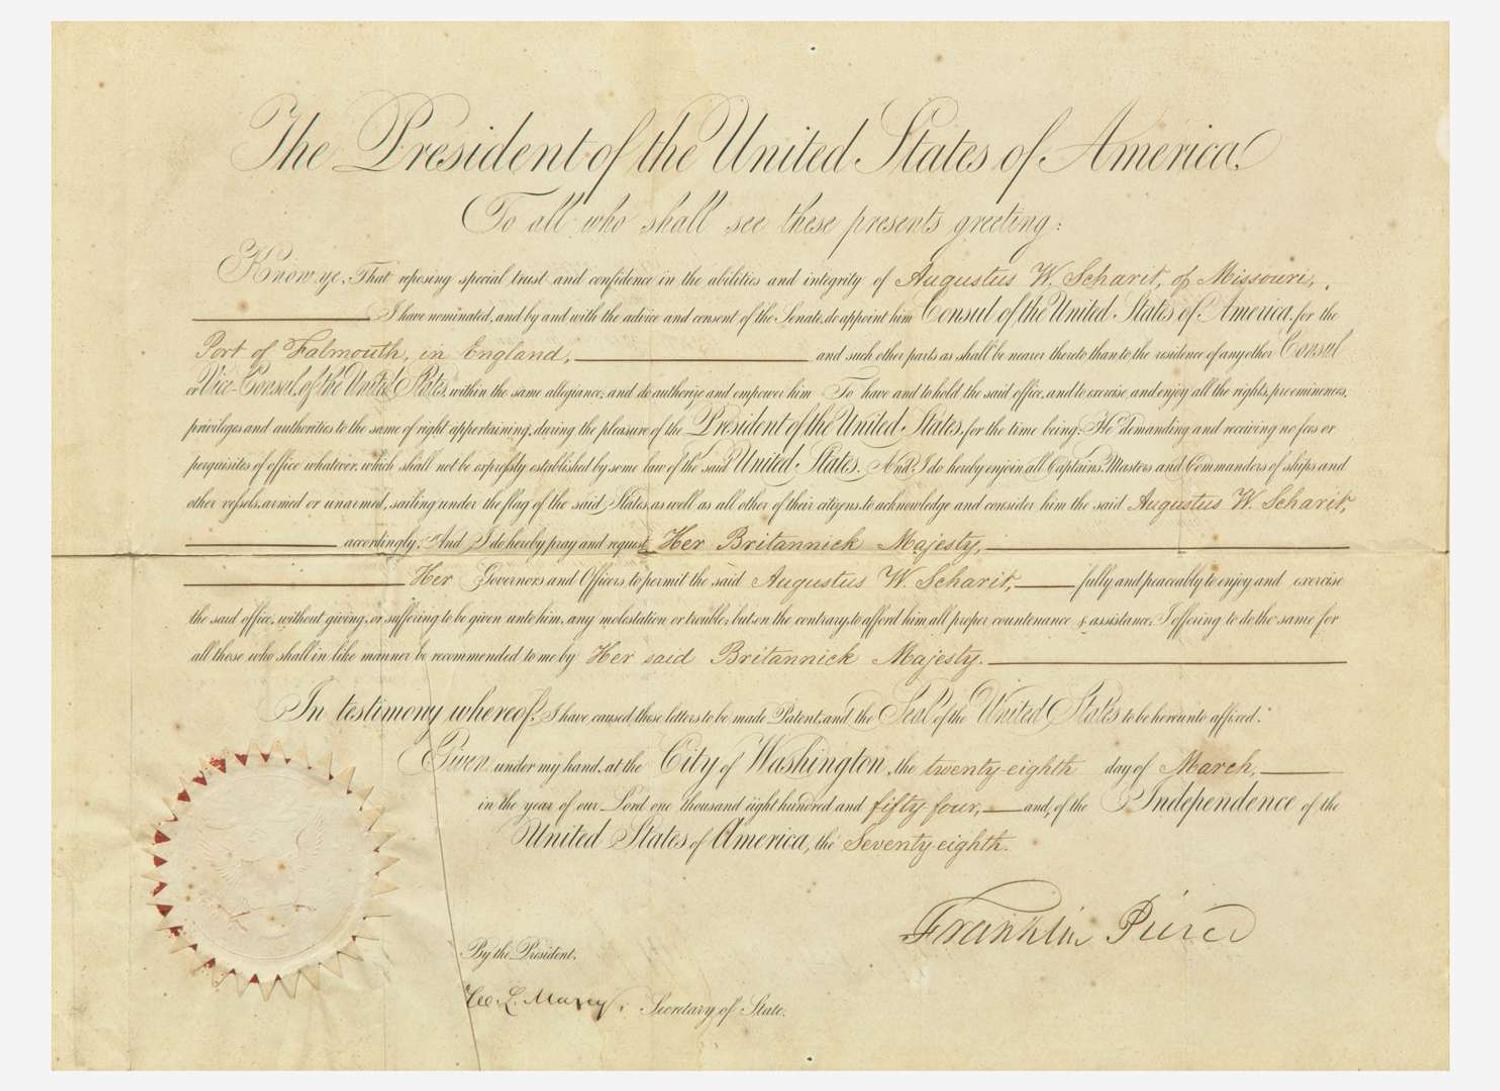 The President of the United States of America,
To all who shall see these presents greeting:
Know ye, That reposing special trust and confidence in the abilities and integrity of Augustus W. Scharit, of Missouri,
I have nominated, and by and with the advice and consent of the Senate, do appoint him Consul of the United States of America, for the
Port of Falmouth, in England, and such other parts as shall be nearer thereto than to the residence of any other Consul
or Vice-Consul of the United States, within the same allegiance; and do authorize and empower him To have and to hold the said office, and to exercise and enjoy all the rights, preeminences,
privileges and authorities to the same of right appertaining, during the pleasure of the President of the United States, for the time being: He demanding and receiving no fees or
perquisites of office whatever, which shall not be expressly established by some law of the said United States. And I do hereby enjoin all Captains, Masters and Commanders of ships and
other vessels, armed or unarmed, sailing under the flag of the said States, as well as all other of their citizens, to acknowledge and consider him the said Augustus W. Scharit,
accordingly. And I do hereby pray and request Her Britannick Majesty,
Her Governors and Officers to permit the said Augustus W. Scharit, fully and peaceably to enjoy and exercise
the said office, without giving, or suffering to be given unto him, any molestation or trouble; but on the contrary, to afford him all proper countenance & assistance; I offering to do the same for
all those who shall in like manner be recommended to me by Her said Britannick Majesty.
In testimony whereof, I have caused these letters to be made Patent, and the Seal of the United States to be hereunto affixed.
Given under my hand, at the City of Washington, the twenty-eighth day of March,
in the year of our Lord one thousand eight hundred and fifty four, and, of the Independence of the
United States of America, the Seventy-eighth.
Franklin Pierce
By the President,
W. L. Marcy, Secretary of State.